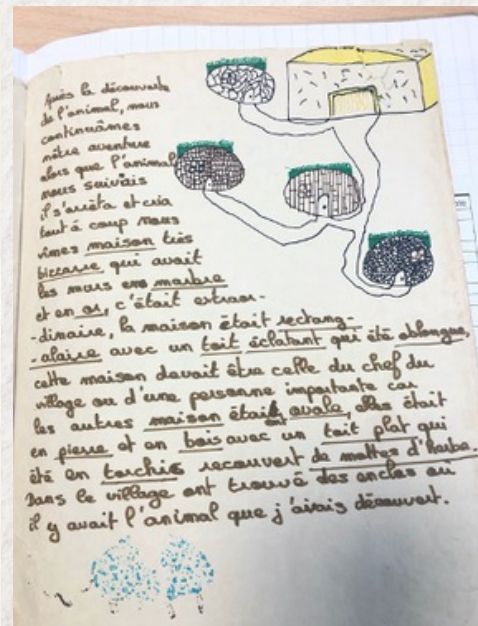 Après la découverte
de l'animal, nous
continuâmes
nôtre aventure
alors que l'animal
nous suivais
il s'arrêta et cria
tout à coup nous
vîmes maison très
bizzarre qui avait
les murs ens marbre
et en or, c'était extraor-
-dinaire, la maison était rectang-
-alaire avec un toit éclatant qui été oblongue,
cette maison devait être celle du chef du
village ou d'une personne importante car
les autres maison était ovale, elles était
en pierre et en bois avec un toit plat qui
été en torchis recouvert de mottes d'herbe.
Dans le village ont trouvé des enclos ou
il y avait l'animal que j'avais découvert.